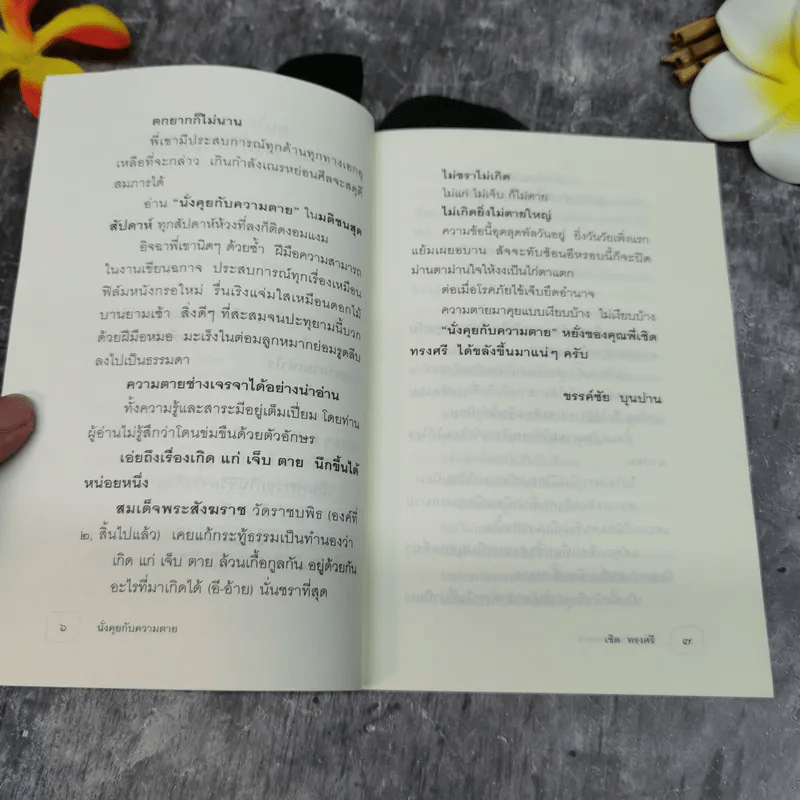 ตกยากก็ไม่นาน
พี่เขามีประสบการณ์ทุกด้านทุกทางเอกอุ
เหลือที่จะกล่าว เกินกำลังเณรหย่อนศีลจะสดุดี
สมภารได้
อ่าน "นั่งคุยกับความตาย" ในมติชนสุด
สัปดาห์ ทุกสัปดาห์ห้วงที่ลงก็ติดงอมแงม
อิจฉาพี่เขานิดๆ ด้วยซ้ำ ฝีมือความสามารถ
ในงานเขียนฉกาจ ประสบการณ์ทุกเรื่องเหมือน
ฟิล์มหนังกรอใหม่ รื่นเริงแจ่มใสเหมือนดอกไม้
บานยามเช้า สิ่งดีๆ ที่สะสมจนประทุยามนี้บวก
ด้วยฝีมือหมอ มะเร็งในต่อมลูกหมากย่อมรูดลีบ
ลงไปเป็นธรรมดา
ความตายช่างเจรจาได้อย่างน่าอ่าน
ทั้งความรู้และสาระมีอยู่เต็มเปี่ยม โดยท่าน
ผู้อ่านไม่รู้สึกว่าโดนข่มขืนด้วยตัวอักษร
เอ่ยถึงเรื่องเกิด แก่ เจ็บ ตาย นึกขึ้นได้
หน่อยหนึ่ง
สมเด็จพระสังฆราช วัดราชบพิธ (องค์ที่
๒, สิ้นไปแล้ว) เคยแก้กระทู้ธรรมเป็นทำนองว่า
เกิด แก่ เจ็บ ตาย ล้วนเกื้อกูลกัน อยู่ด้วยกัน
อะไรที่มาเกิดได้ (อี-อ้าย) นั่นชราที่สุด
๖ นั่งคุยกับความตาย
ไม่ชราไม่เกิด
ไม่แก่ ไม่เจ็บ ก็ไม่ตาย
ไม่เกิดยิ่งไม่ตายใหญ่
ความข้อนี้อุตลุดพัลวันอยู่ ยิ่งวันวัยเพิ่งแรก
แย้มเผยอบาน สัจจะทับซ้อนอีหรอบนี้ก็จะปิด
ม่านตาม่านใจให้งงเป็นไก่ตาแตก
ต่อเมื่อโรคภัยไข้เจ็บยึดอำนาจ
ความตายมาคุยแบบเงียบบ้าง ไม่เงียบบ้าง
"นั่งคุยกับความตาย" หยั่งของคุณพี่เชิด
ทรงศรี ได้ขลังขึ้นมาแน่ๆ ครับ
ขรรค์ชัย บุนปาน
เชิด ทรงศรี ๗